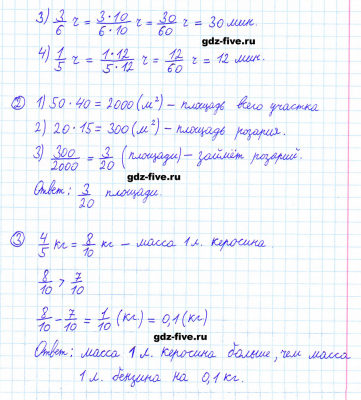 3) 3/6 ч = 3·10/6·10 ч = 30/60 ч = 30 мин.
gdz-five.ru
4) 1/5 ч = 1·12/5·12 ч = 12/60 ч = 12 мин.
② 1) 50·40 = 2000 (м²) – площадь всего участка
2) 20·15 = 300 (м²) – площадь розария.
3) 300/2000 = 3/20 (площади) – займёт розарий.
gdz-five.ru
Ответ: 3/20 площади.
③ 4/5 кг = 8/10 кг – масса 1 л. керосина.
8/10 > 7/10
8/10 - 7/10 = 1/10 (кг) = 0,1 (кг)
gdz-five.ru
Ответ: масса 1 л. керосина больше, чем масса
1 л. бензина на 0,1 кг.